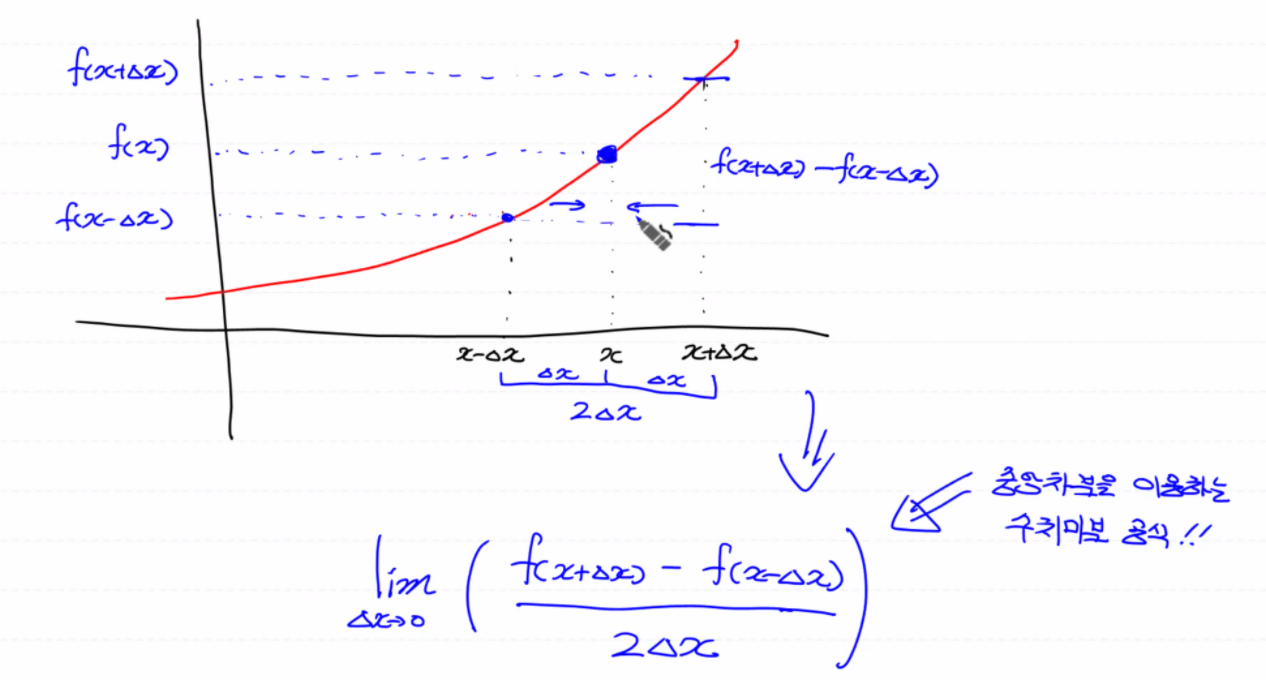 f(x+Δx)
f(x)
f(x+Δx) - f(x-Δx)
f(x-Δx)
x-Δx x x+Δx
Δx Δx
2Δx
중앙차분을 이용하는
수치미분 공식!!
lim Δx→0 ( f(x+Δx) - f(x-Δx) / 2Δx )